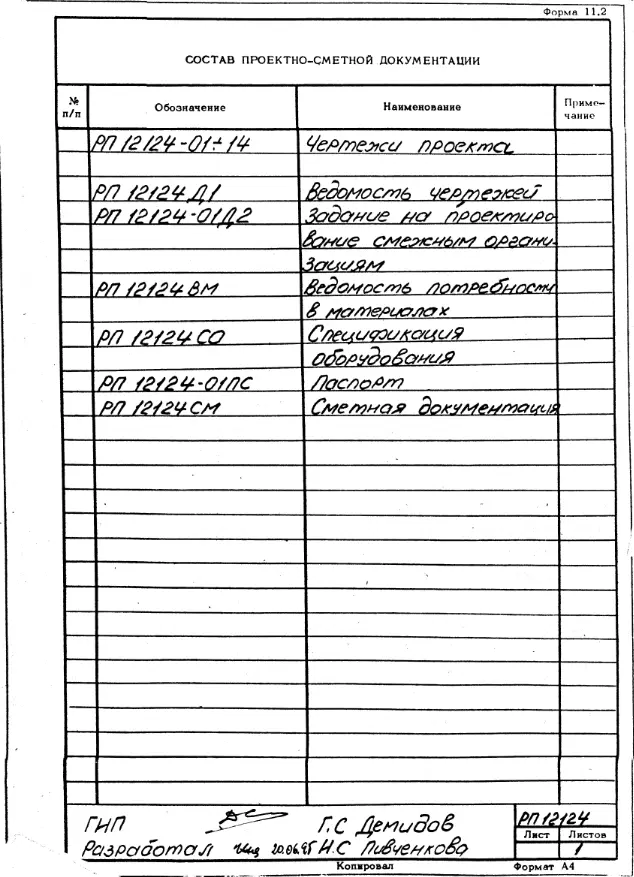 Форма 11.2
СОСТАВ ПРОЕКТНО-СМЕТНОЙ ДОКУМЕНТАЦИИ
№ п/п Обозначение Наименование Приме-
чание
РП 12124-01÷14 Чертежи проекта
РП 12124 Д1 Ведомость чертежей
РП 12124-01Д2 Задание на проектиро
вание смежным органи-
зациям
РП 12124 ВМ Ведомость потребности
в материалах
РП 12124 СО Спецификация
оборудования
РП 12124-01ПС Паспорт
РП 12124 СМ Сметная документация
ГИП Г.С Демидов РП 12124
Лист Листов
Разработал 20.06.95 Н.С Пивченкова 1
Копировал Формат А4